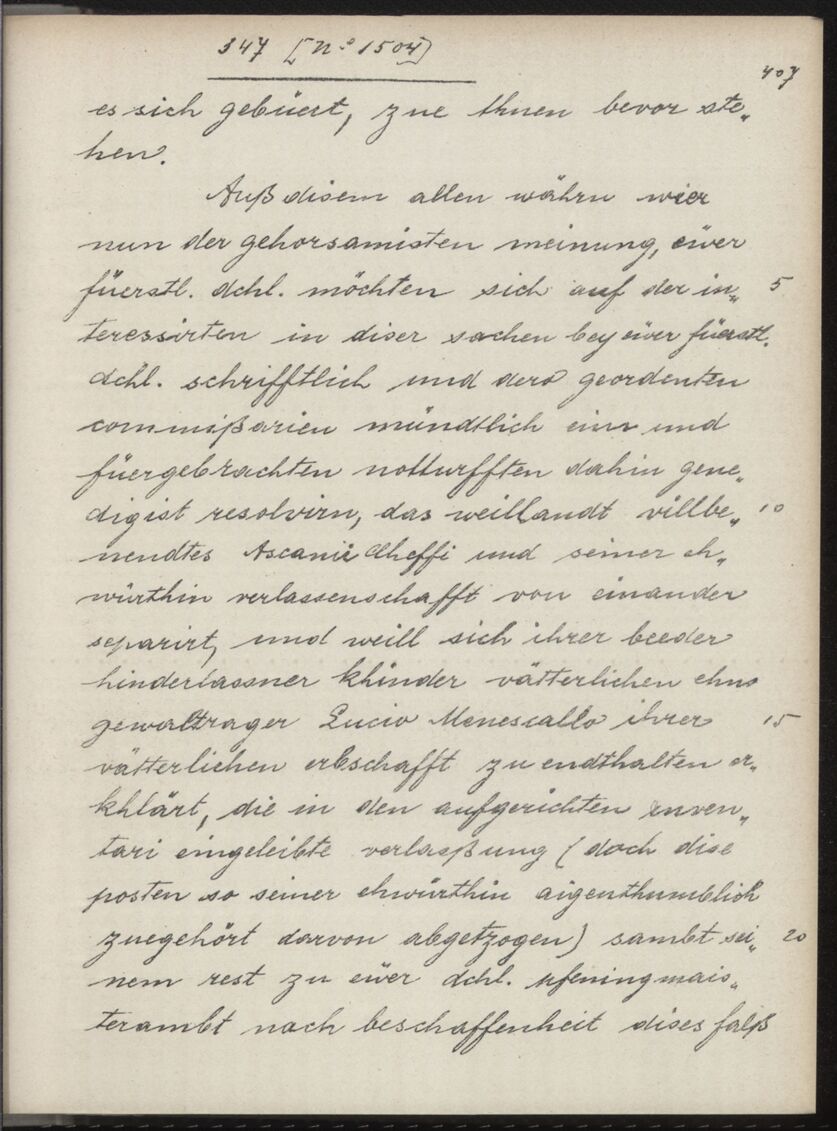 347 [No 1504]
407
es sich gebüert, zue Ihnen bevor ste„
hen.
Auß disem allen währn wier
nun der gehorsamisten meinung, eüer
füerstl. dchl. möchten sich auf der in„ 5
teressirten in diser sachen bey eüer füerstl.
dchl. schrifftlich und dero geordenten
commißarien mündtlich ein und
füergebrachten notturfften dahin gene„
digist resolvirn, das weillandt villbe„ 10
nendtes Ascanii Cheffi und seiner eh„
würthin verlassenschafft von einander
separirt, und weill sich ihrer beeder
hinderlassner khinder vätterlichen ehns
gewalttrager Lucio Menescallo ihrer 15
vätterlichen erbschafft zu endthalten er„
khlärt, die in den aufgerichten inven„
tari eingeleibte verlaßung (doch dise
posten so seiner ehwürthin aigenthumblich
zuegehört darvon abgetzogen) sambt sei„ 20
nem rest zu eüer dchl. pfeningmais„
terambt nach beschaffenheit dises falß